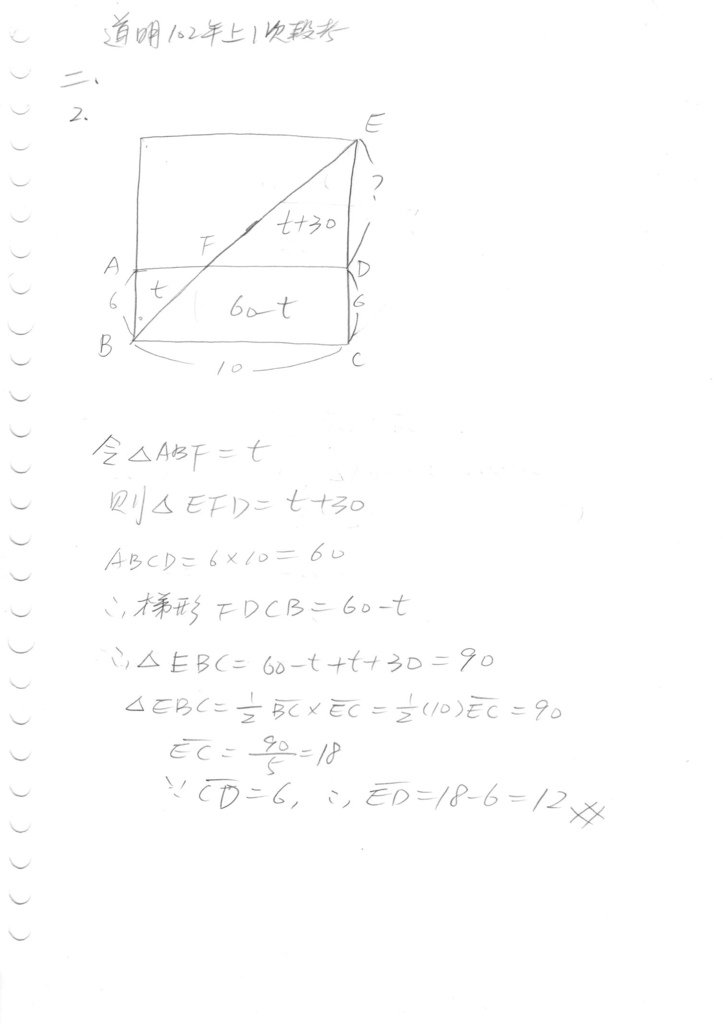 道明102年上1次段考
二、
2.
E
?
t+30
F
A
D
6
t
6
60-t
B
C
10
令△ABF=t
則△EFD=t+30
ABCD=6×10=60
∴梯形FDCB=60-t
∴△EBC=60-t+t+30=90
△EBC=½B̅C̅×E̅C̅=½(10)E̅C̅=90
E̅C̅=90/5=18
∵C̅D̅=6, ∴E̅D̅=18-6=12